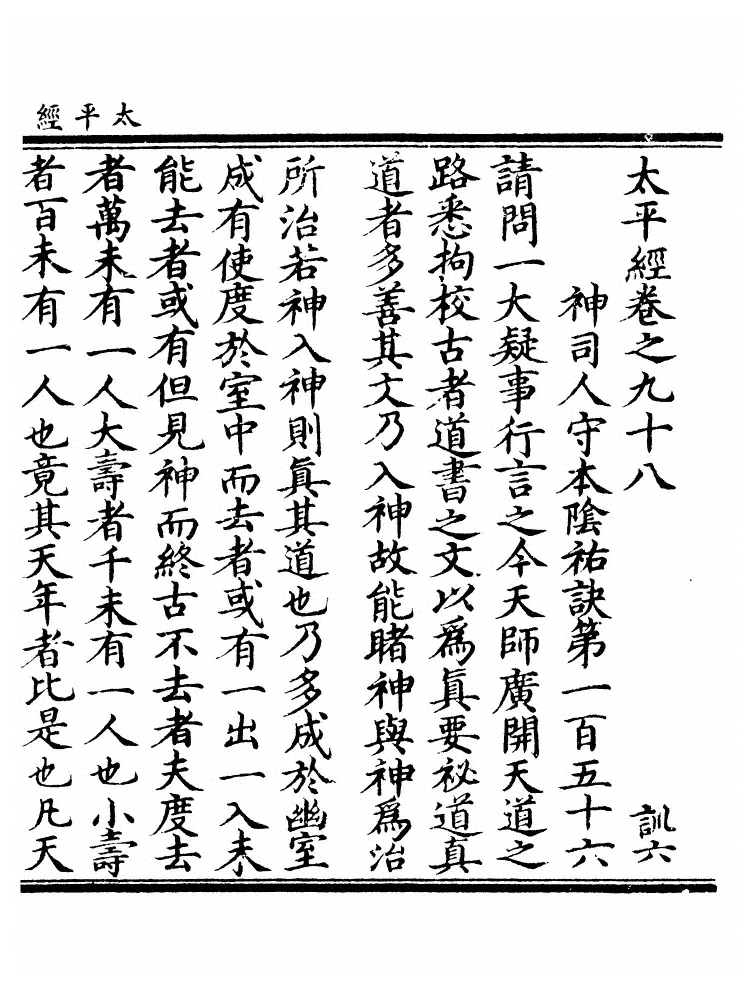 太平經
太平經卷之九十八 訓六
神司人守本陰祐訣第一百五十六
請問一大疑事行言之今天師廣開天道之
路悉拘校古者道書之文以爲眞要祕道真
道者多善其文乃入神故能睹神與神爲治
所治若神入神則眞其道也乃多成於幽室
成有使度於室中而去者或有一出一入未
能去者或有但見神而終古不去者夫度去
者萬未有一人大壽者千未有一人也小壽
者百未有一人也竟其天年者比是也凡天